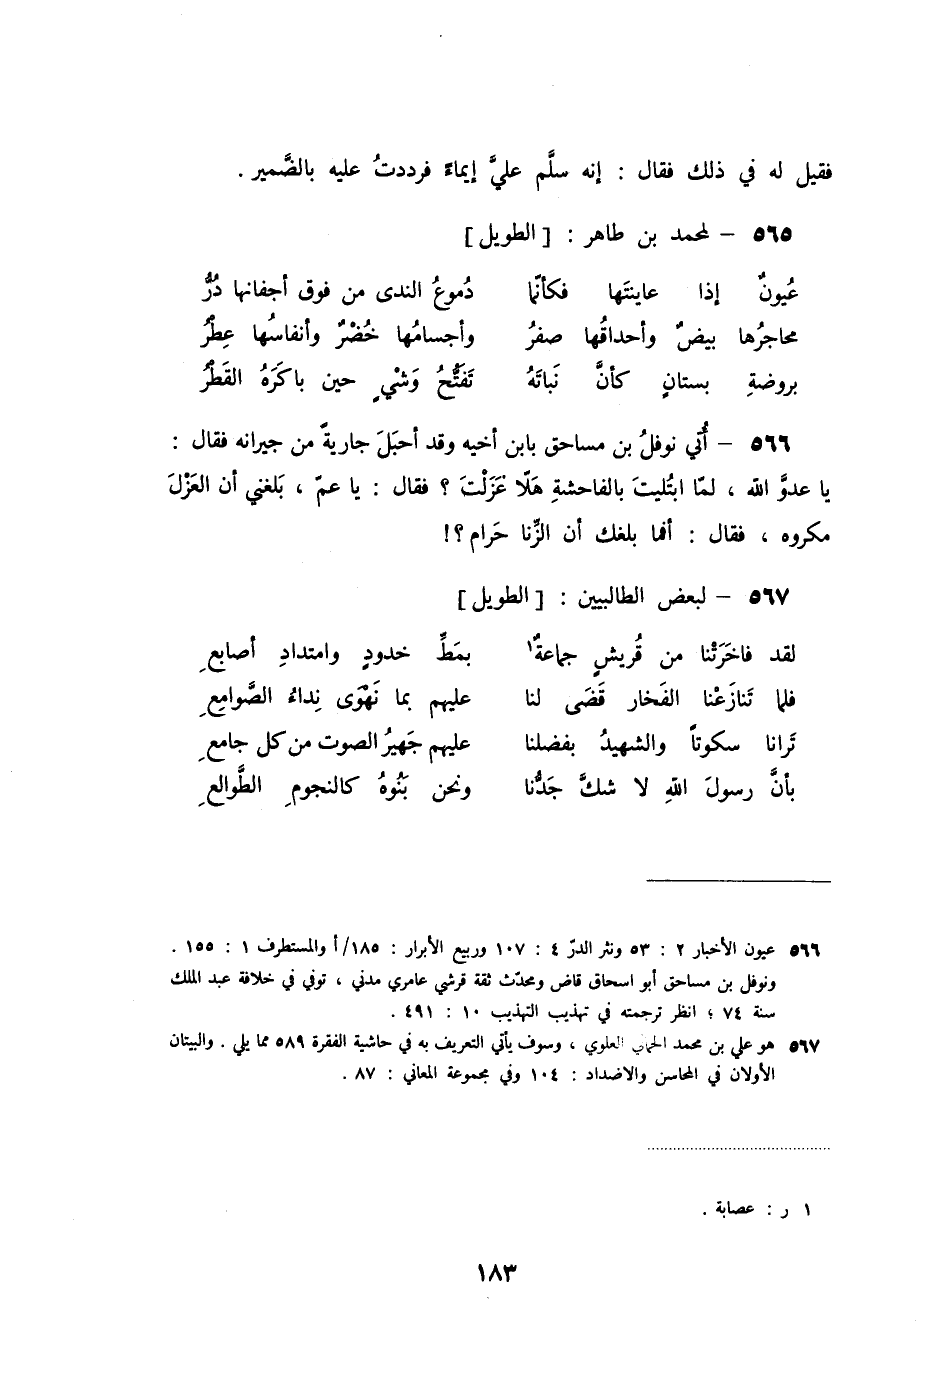 فقيل له في ذلك فقال : إنه سلَّم عليَّ إيماءً فرددتُ عليه بالضَّمير .
٥٦٥ – لمحمد بن طاهر : [ الطويل ]
عُيونٌ إذا عاينتَها فكأنّما دُموعُ الندى من فوق أجفانها دُرُّ
محاجرُها بيضٌ وأحداقُها صفرُ وأجسامُها خُضْرٌ وأنفاسُها عِطْرُ
بروضةِ بستانٍ كأنَّ نَباتَهُ تَفَتُّحُ وَشْيٍ حين باكَرَهُ القَطْرُ
٥٦٦ – أُتي نوفلُ بن مساحق بابن أخيه وقد أحبَلَ جاريةً من جيرانه فقال :
يا عدوَّ الله ، لمّا ابتُليتَ بالفاحشةِ هَلّا عَزَلْتَ ؟ فقال : يا عمّ ، بَلغني أن العَزْلَ
مكروه ، فقال : أفما بلغك أن الزِّنا حَرام ؟!
٥٦٧ – لبعض الطالبيين : [ الطويل ]
لقد فاخَرَتْنا من قُريشٍ جماعةٌ١ بمَطِّ خدودٍ وامتدادِ أصابعِ
فلما تَنازَعْنا الفَخار قَضَى لنا عليهم بما نَهْوَى نِداءُ الصَّوامِعِ
تَرانا سكوتاً والشهيدُ بفضلنا عليهم جَهيرُ الصوت من كل جامعِ
بأنَّ رسولَ اللهِ لا شكَّ جَدُّنا ونحن بَنُوهُ كالنجومِ الطَّوالعِ
٥٦٦ عيون الأخبار ٢ : ٥٣ ونثر الدرّ ٤ : ١٠٧ وربيع الأبرار : ١٨٥/أ والمستطرف ١ : ١٥٥ .
ونوفل بن مساحق أبو اسحاق قاض ومحدّث ثقة قرشي عامري مدني ، توفي في خلافة عبد الملك
سنة ٧٤ ؛ انظر ترجمته في تهذيب التهذيب ١٠ : ٤٩١ .
٥٦٧ هو علي بن محمد الحماني العلوي ، وسوف يأتي التعريف به في حاشية الفقرة ٥٨٩ مما يلي . والبيتان
الأولان في المحاسن والاضداد : ١٠٤ وفي مجموعة المعاني : ٨٧ .
١ ر : عصابة .
١٨٣